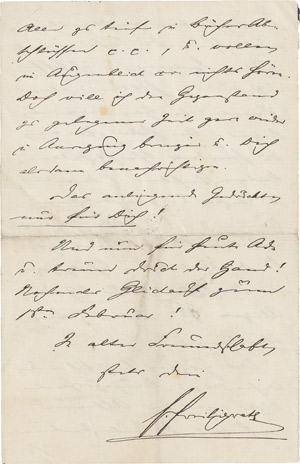 Alle zu tief in Bücher Ab-
schlüssen c. c., u. wollen
im Augenblick von nichts hören.
Doch will ich den Gegenstand
zu gelegener Zeit gern wieder
in Anregung bringen u. Dich
alsdann benachrichtigen.
Das anliegende Gedichtchen
nur für Dich!
Und nun für heute Ade
u. treuen Druck der Hand!
Nochmals Glückauf zum
Februar!
In alter Freundschaft
stets Dein
FFreiligrath